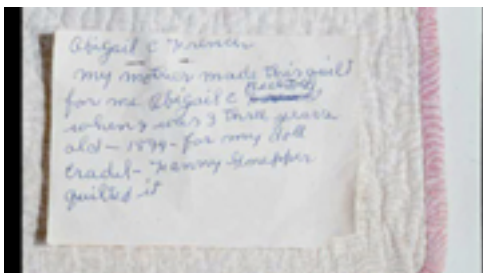 Abigail C
my mother made this quilt
for me Abigail C
when I was 3 three years
old - 1899 - for my doll
Cradel - Fanny
quilted it